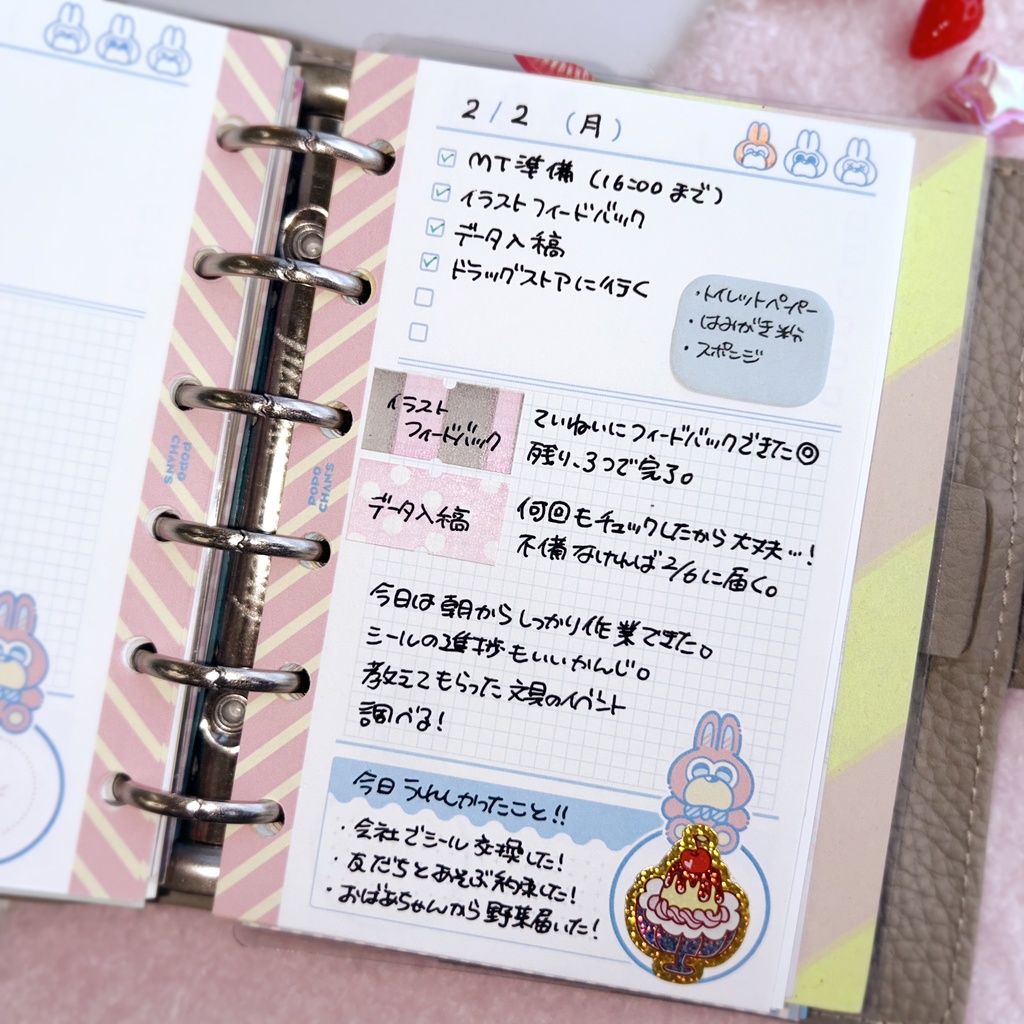 2/2 (月)
MT準備 (16:00まで)
イラストフィードバック
データ入稿
ドラッグストアに行く
・トイレットペーパー
・はみがき粉
・スポンジ
イラスト
フィードバック
ていねいにフィードバックできた◎
残り、3つで完了。
データ入稿
何回もチェックしたから大丈夫…!
不備なければ2/6に届く。
今日は朝からしっかり作業できた。
シールの進捗もいいかんじ。
教えてもらった文具のイベント
調べる!
今日うれしかったこと!!
・会社でシール交換した!
・友だちとあそぶ約束した!
・おばあちゃんから野菜届いた!
POPO
CHAN'S
POPO
CHAN'S